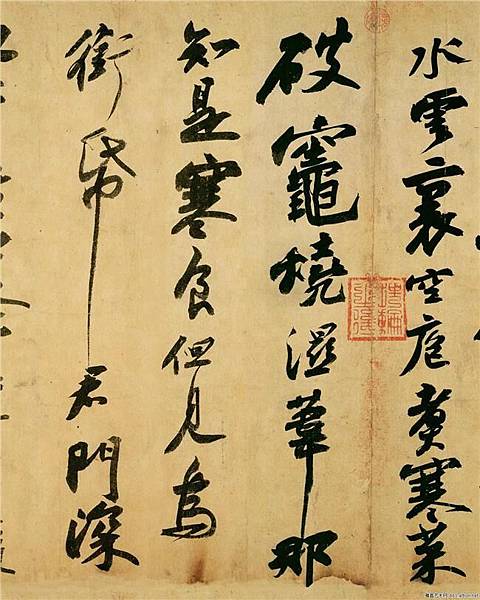 水雲裏空庖煑寒菜
破竈燒濕葦那
知是寒食但見烏
銜帋君門深